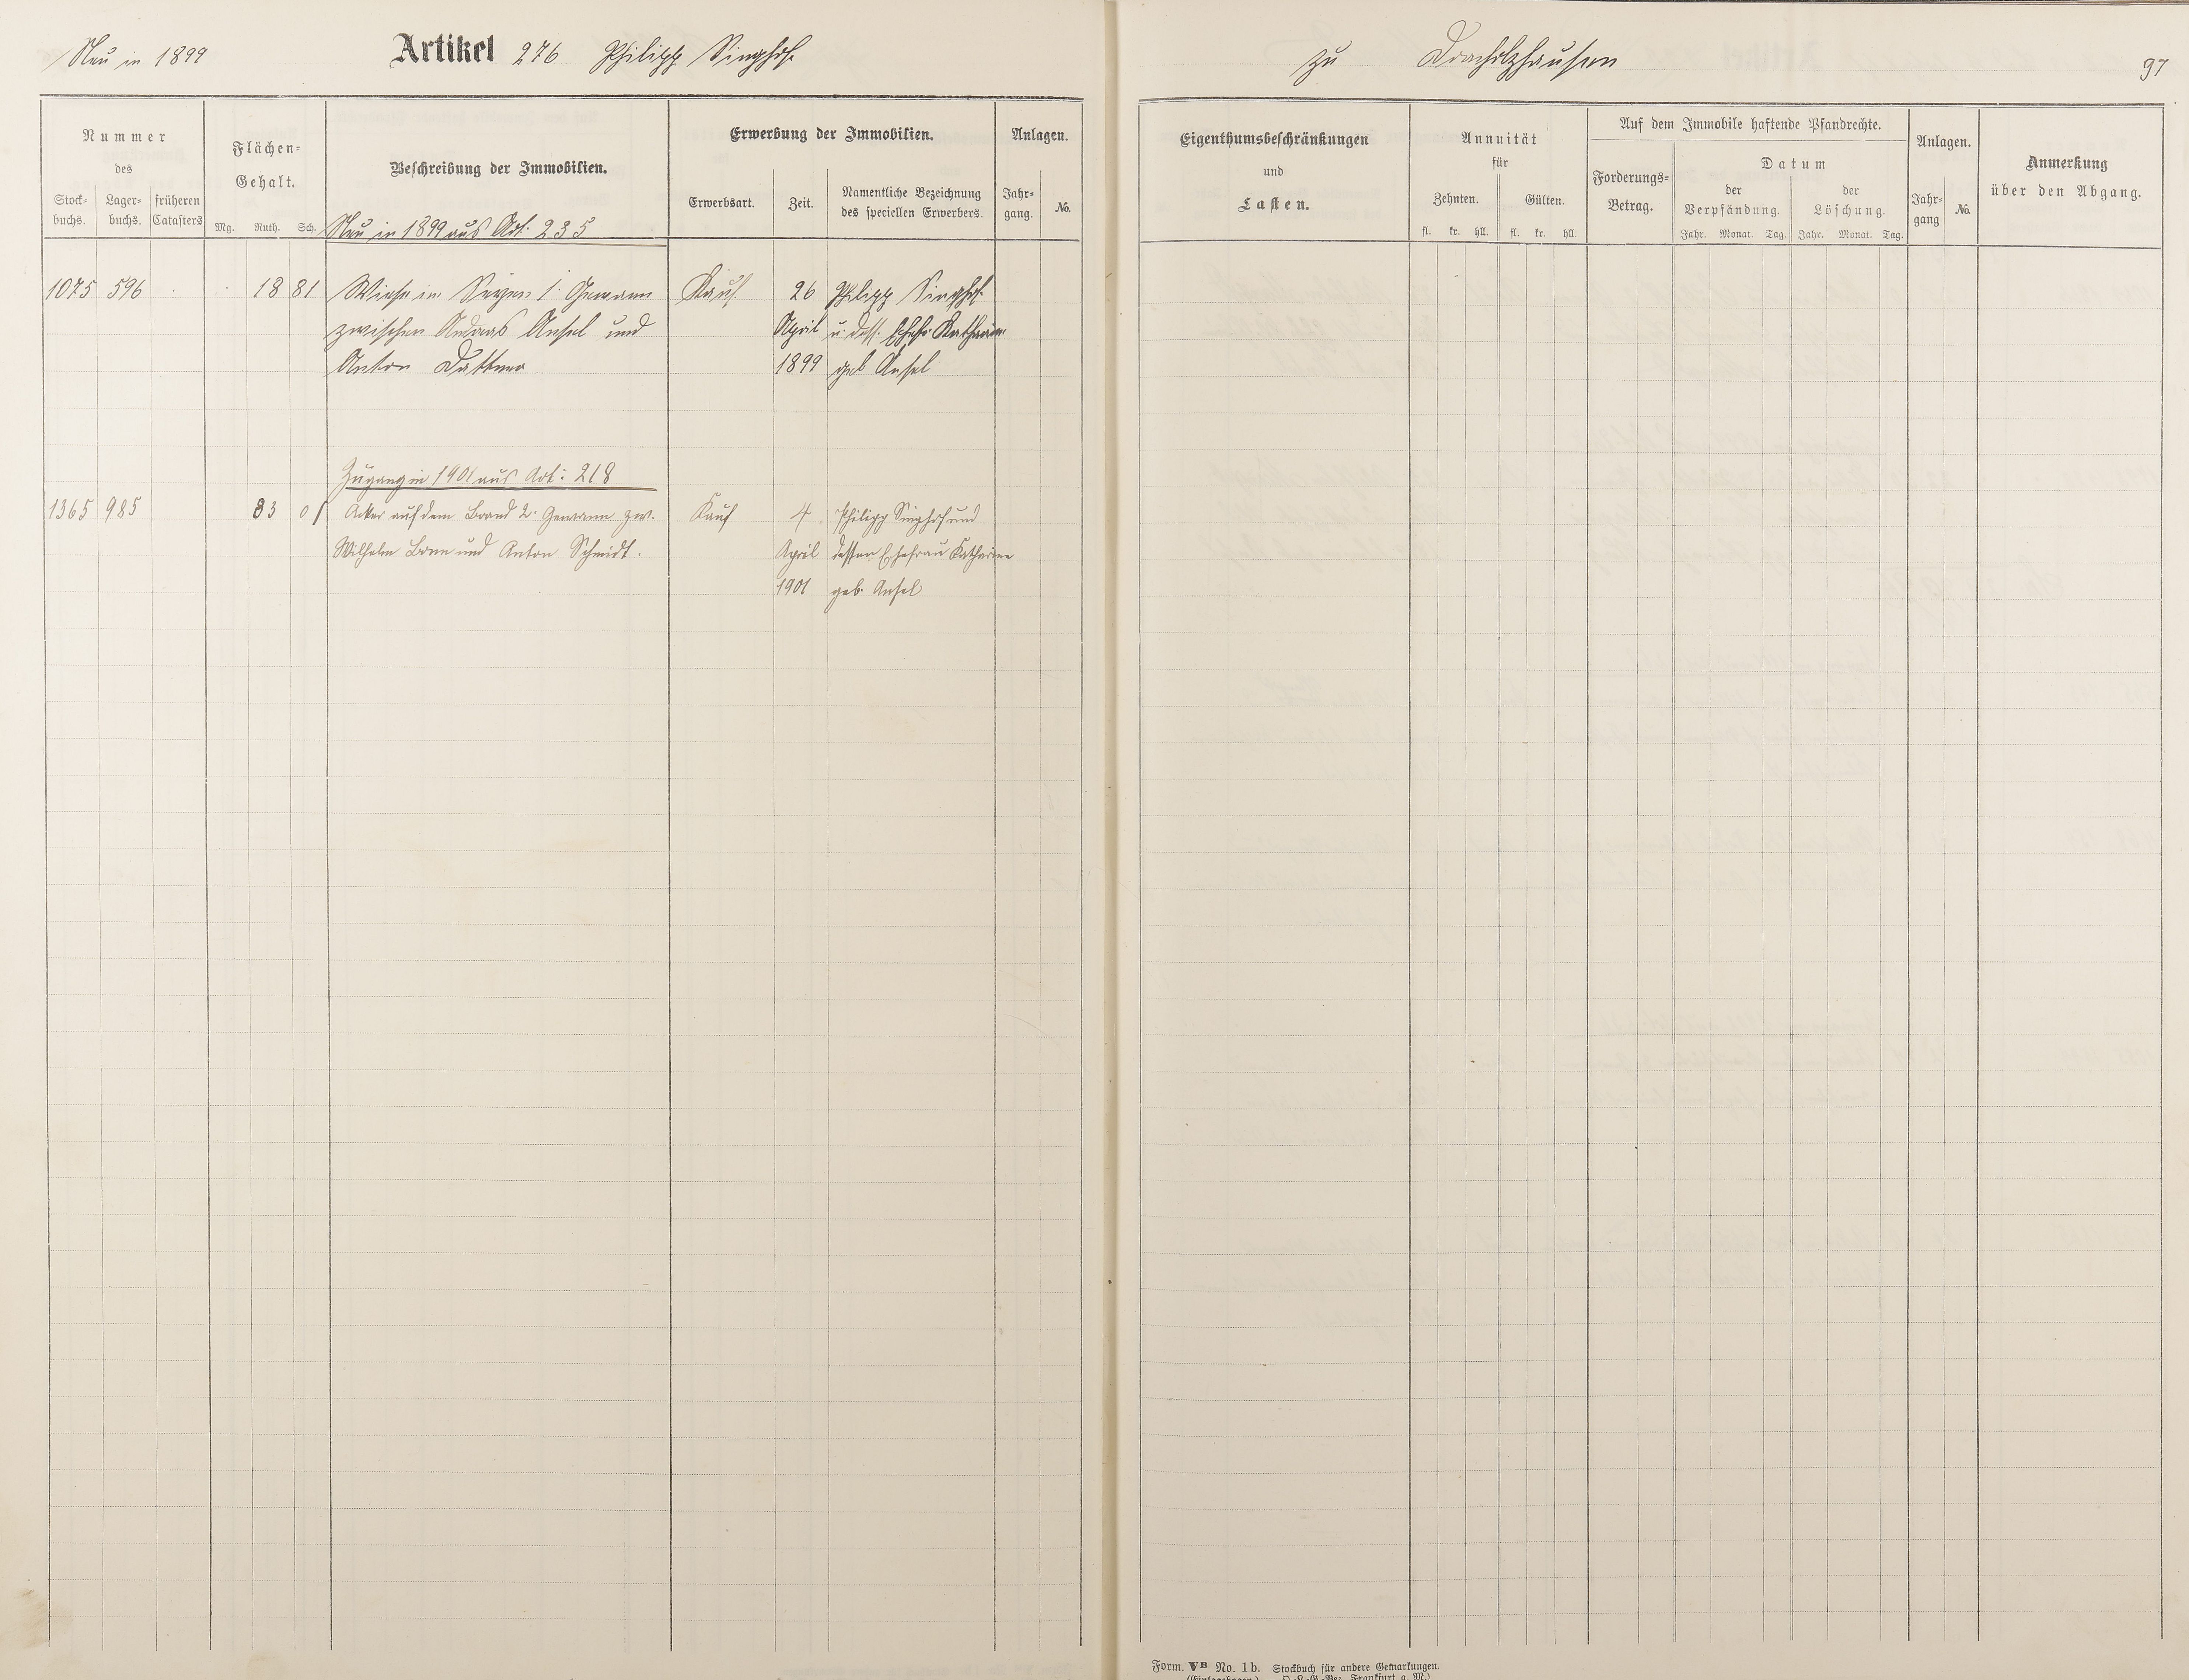 Neu in 1899
Artikel 276 Philipp Singhof
Nummer
des
Stock-
buchs.
Lager-
buchs.
früheren
Catasters
Flächen-
Gehalt.
Mg. Ruth. Sch.
Beschreibung der Immobilien.
Neu in 1899 aus Art: 235
Erwerbung der Immobilien.
Erwerbsart.
Zeit.
Namentliche Bezeichnung
des speciellen Erwerbers.
Anlagen.
Jahr-
gang.
No.
1075 596 . . 18 81 Wiese im 1. Gewann Kauf 26 Philipp Singhof
zwischen Andreas Ansel und April u. dess. Ehefr. Katharine
Anton Dattner 1899 geb Ansel
Zugang in 1901 aus Art: 218
1365 985 83 01 Acker auf dem Brand 2. Gewann zw. Kauf 4 Philipp Singhof und
Wilhelm Bonn und Anton Schmidt. April dessen Ehefrau Katharine
1901 geb. Ansel
zu Dornholzhausen
97
Eigenthumsbeschränkungen
und
Lasten.
Annuität
für
Zehnten. Gülten.
fl. kr. hll. fl. kr. hll.
Auf dem Immobile haftende Pfandrechte.
Forderungs-
Betrag.
Datum
der
Verpfändung.
der
Löschung.
Jahr. Monat. Tag. Jahr. Monat. Tag.
Anlagen.
Jahr-
gang
No.
Anmerkung
über den Abgang.
Form. VB No. 1b. Stockbuch für andere Gemarkungen.
(Einlagebogen.) O.-L.-G.-Bez. Frankfurt a. M.)